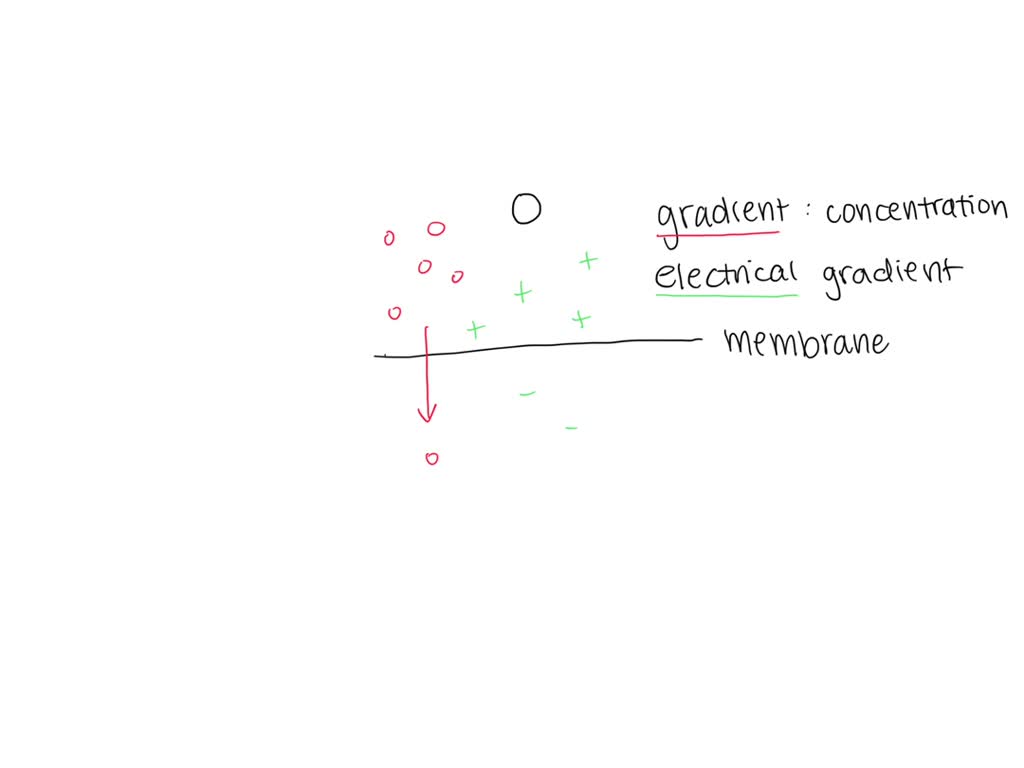 gradient : concentration
electrical gradient
+ + + +
membrane
- -